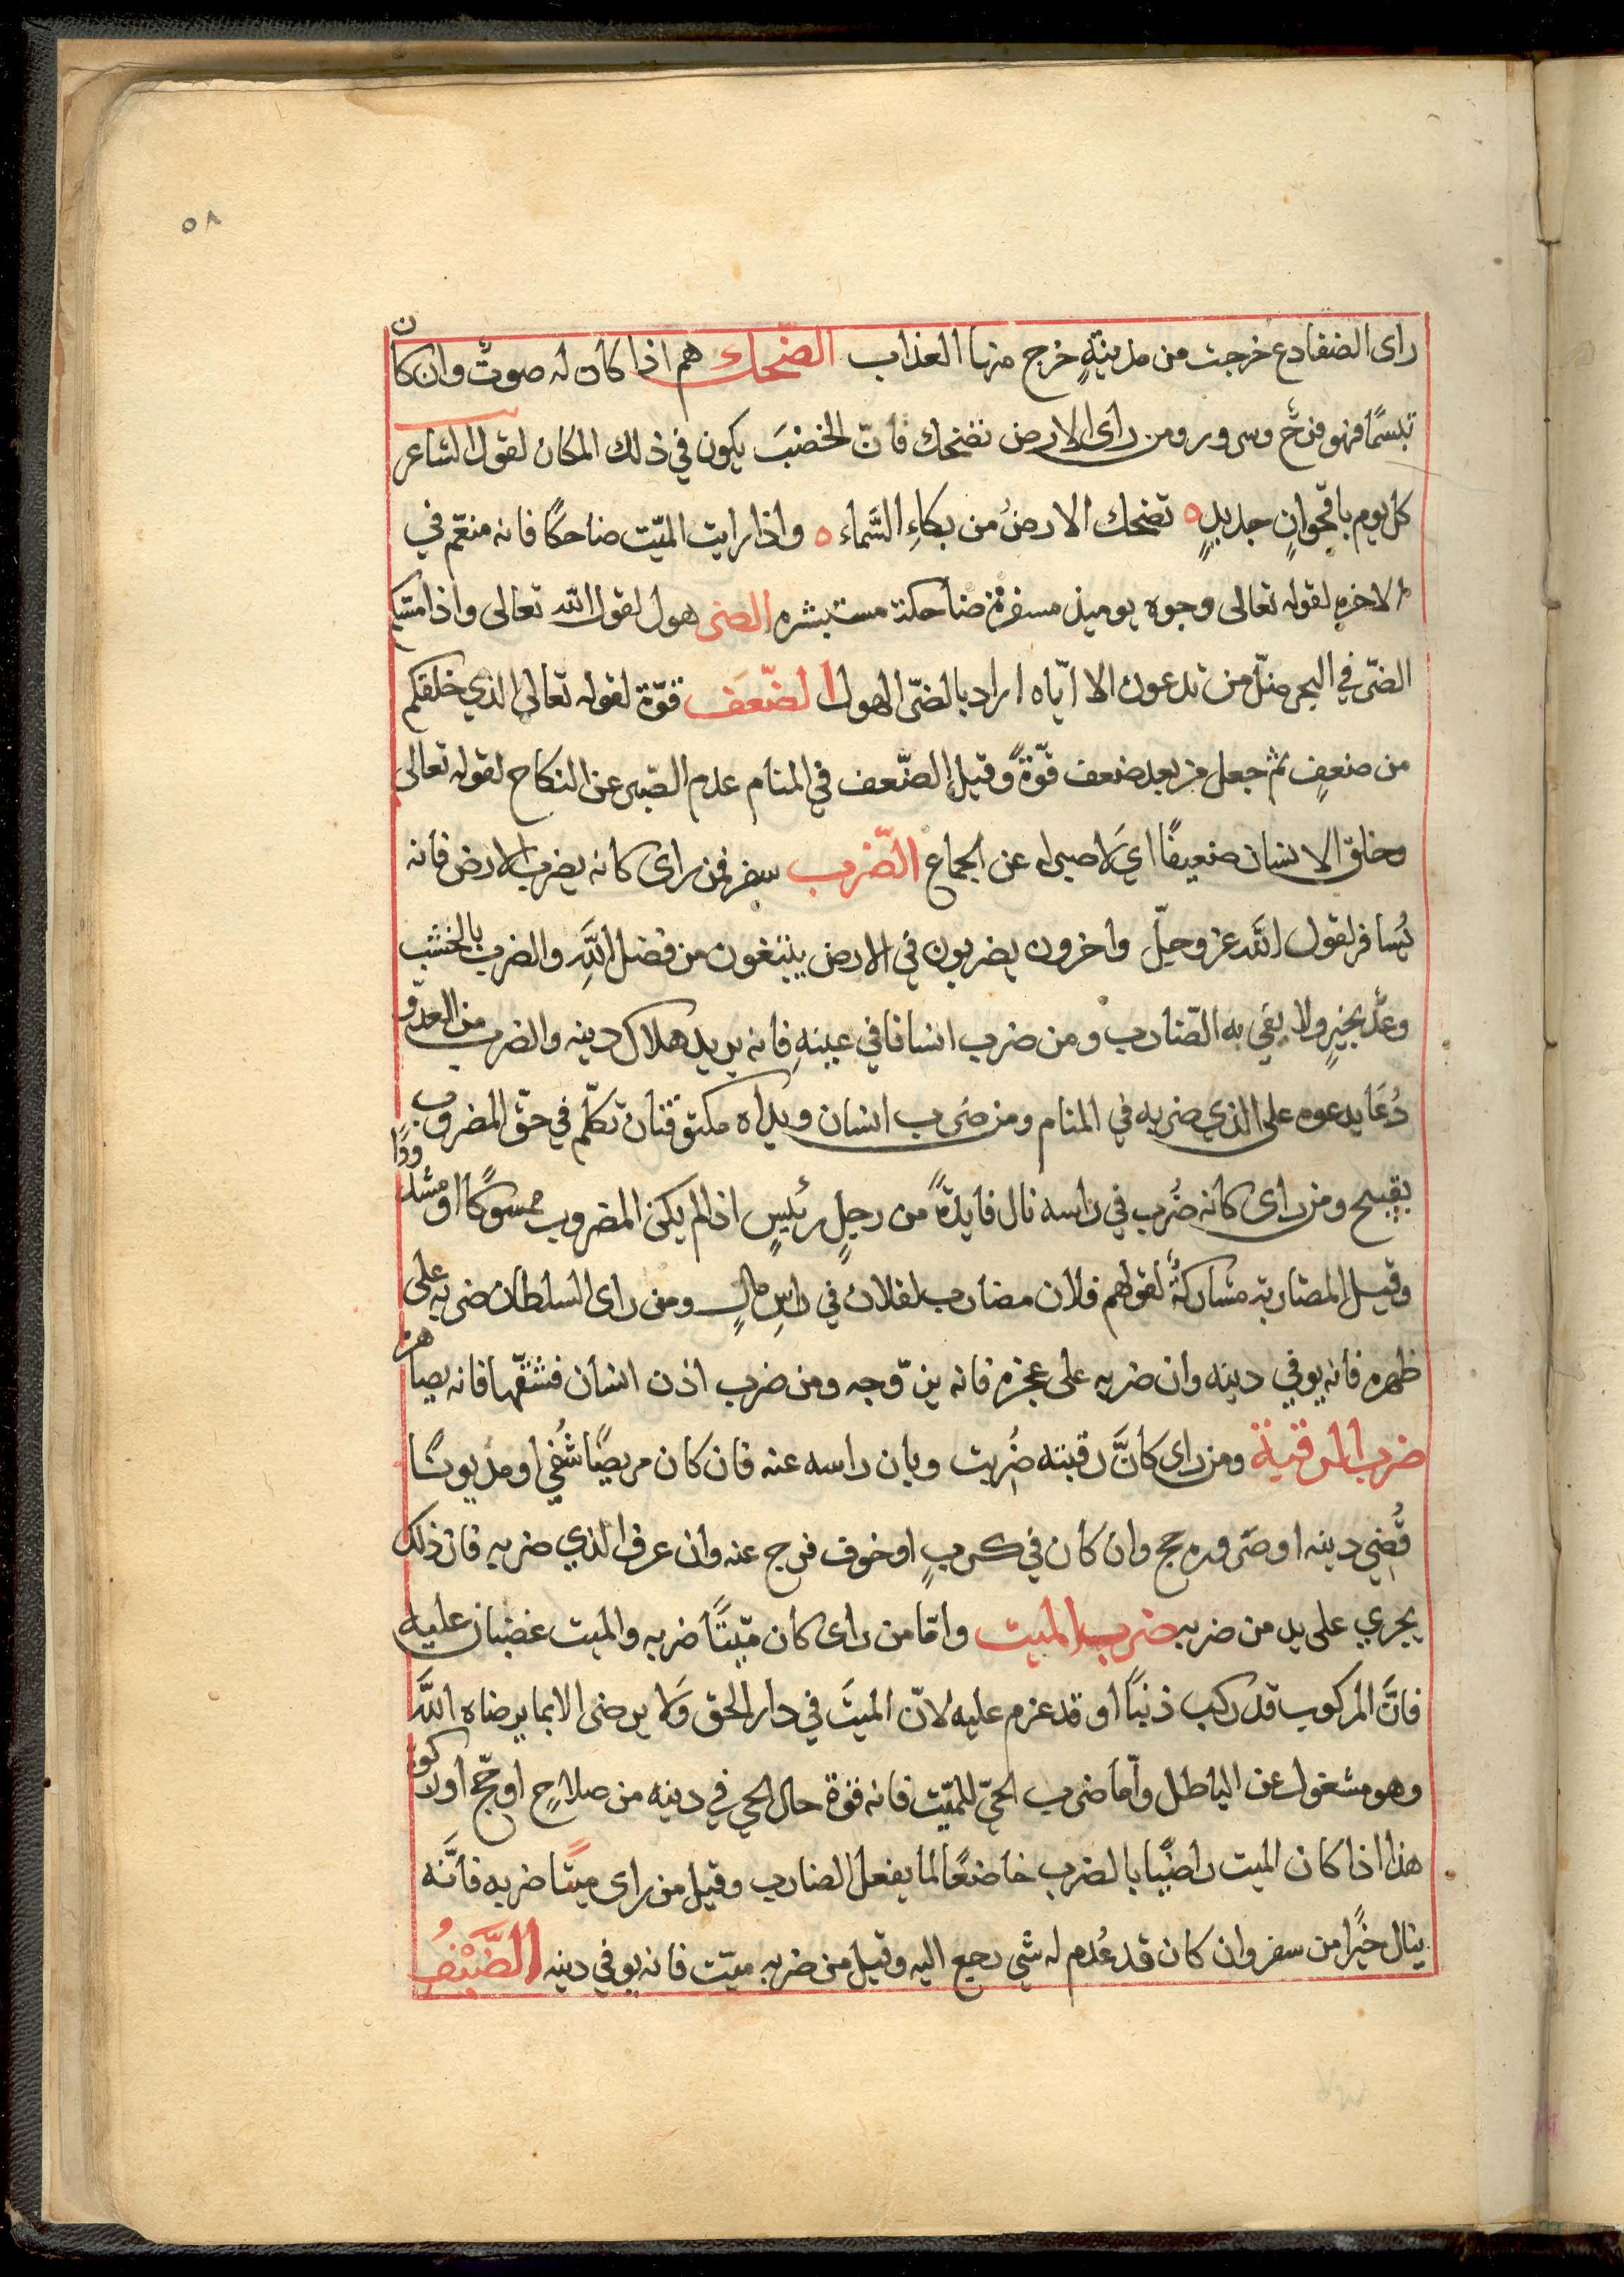 ٥٨
راى الضفادع خرجت من مدينةٍ خرج منها العذاب الضّحك هم اذا كان له صوتٌ وان كان
تبسمًا فهو فرحٌ وسرور ومن راى الارض تضحك فانّ الخصبَ يكون في ذلك المكان لقول الشاعر
كل يوم باقحوانٍ جديدٍ ٥ تضحك الارضُ من بكاءِ السَّماء ٥ واذا رايت الميّت ضاحكًا فانه منعّم في
الاخره لقوله تعالى وجوه يوميذ مسفرة ضاحكة مستبشره الضر هول لقول الله تعالى واذا مسّكم
الضّر في البحر ضلّ من تدعون الا ايّاه اراد بالضّر الهول الضّعَف قوّة لقوله تعالى الذي خلقكم
من ضعفٍ ثم جعل من بعد ضعف قوّةً وقيل الضّعف في المنام عدم الصّبر عن النكاح لقوله تعالى
وخلق الانسان ضعيفًا اي لا صبر له عن الجماع الضّرب سفر فمن راى كانه يضرب الارض فانه
يُسافر لقول الله عز وجلّ واخرون يضربون في الارض يبتغون من فضل اللهِ والضرب بالخشب
وعدٌ بخيرٍ ولا يفي به الضّارب ومن ضرب انسانا في عينهِ فانه يريد هلاك دينه والضرب من العدّو
دُعَا يدعوه على الذي ضربه في المنام ومن ضرب انسان ويداه مكتوفتان تكلّم في حقّ المضروب
بقبيح ومن راى كانه ضُرب في راسه نال فايدةً من رجلٍ رئيسٍ اذا لم يكن المضروب ممسوكًا او مشدودًا
وقيل المضاربة مشاركةٌ لقولهم فلان مضارب لفلان في راسِ مالٍ ومن راى السلطان ضربه على
ظهره فانه يوفي دينه وان ضربه على عجزه فانه يزّوجه ومن ضرب اذن انسان فشقّها فانه يصاهره
ضرب الرقبة ومن راى كانَّ رقبته ضُربت وبان راسه عنه فان كان مريضًا شُفي او مديونًا
قُضي دينه او صَروره حج وان كان في كربٍ او خوف فرج عنه وان عرف الذي ضربه فان ذلك
يجري على يد من ضربه ضرب الميت وامّا من راى كان ميّتًا ضربه والميت غضبان عليه
فانَّ المركوب قد ركب ذنبًا او قد عزم عليه لانّ الميتَ في دار الحق ولا يرضى الا بما يرضاه الله
وهو مشغول عن الباطل وأما ضرب الحيّ للميّت فانه قوة حال الحي في دينه من صلاحٍ او حّج او زكوة
هذا اذا كان الميت راضيًا بالضرب خاضعًا لما يفعل الضارب وقيل من راى ميتًا ضربه فانّه
ينال خيرًا من سفر وان كان قد عُدم له شي رجع اليه وقيل من ضربه ميّت فانه يوفي دينه الضَّيْفُ